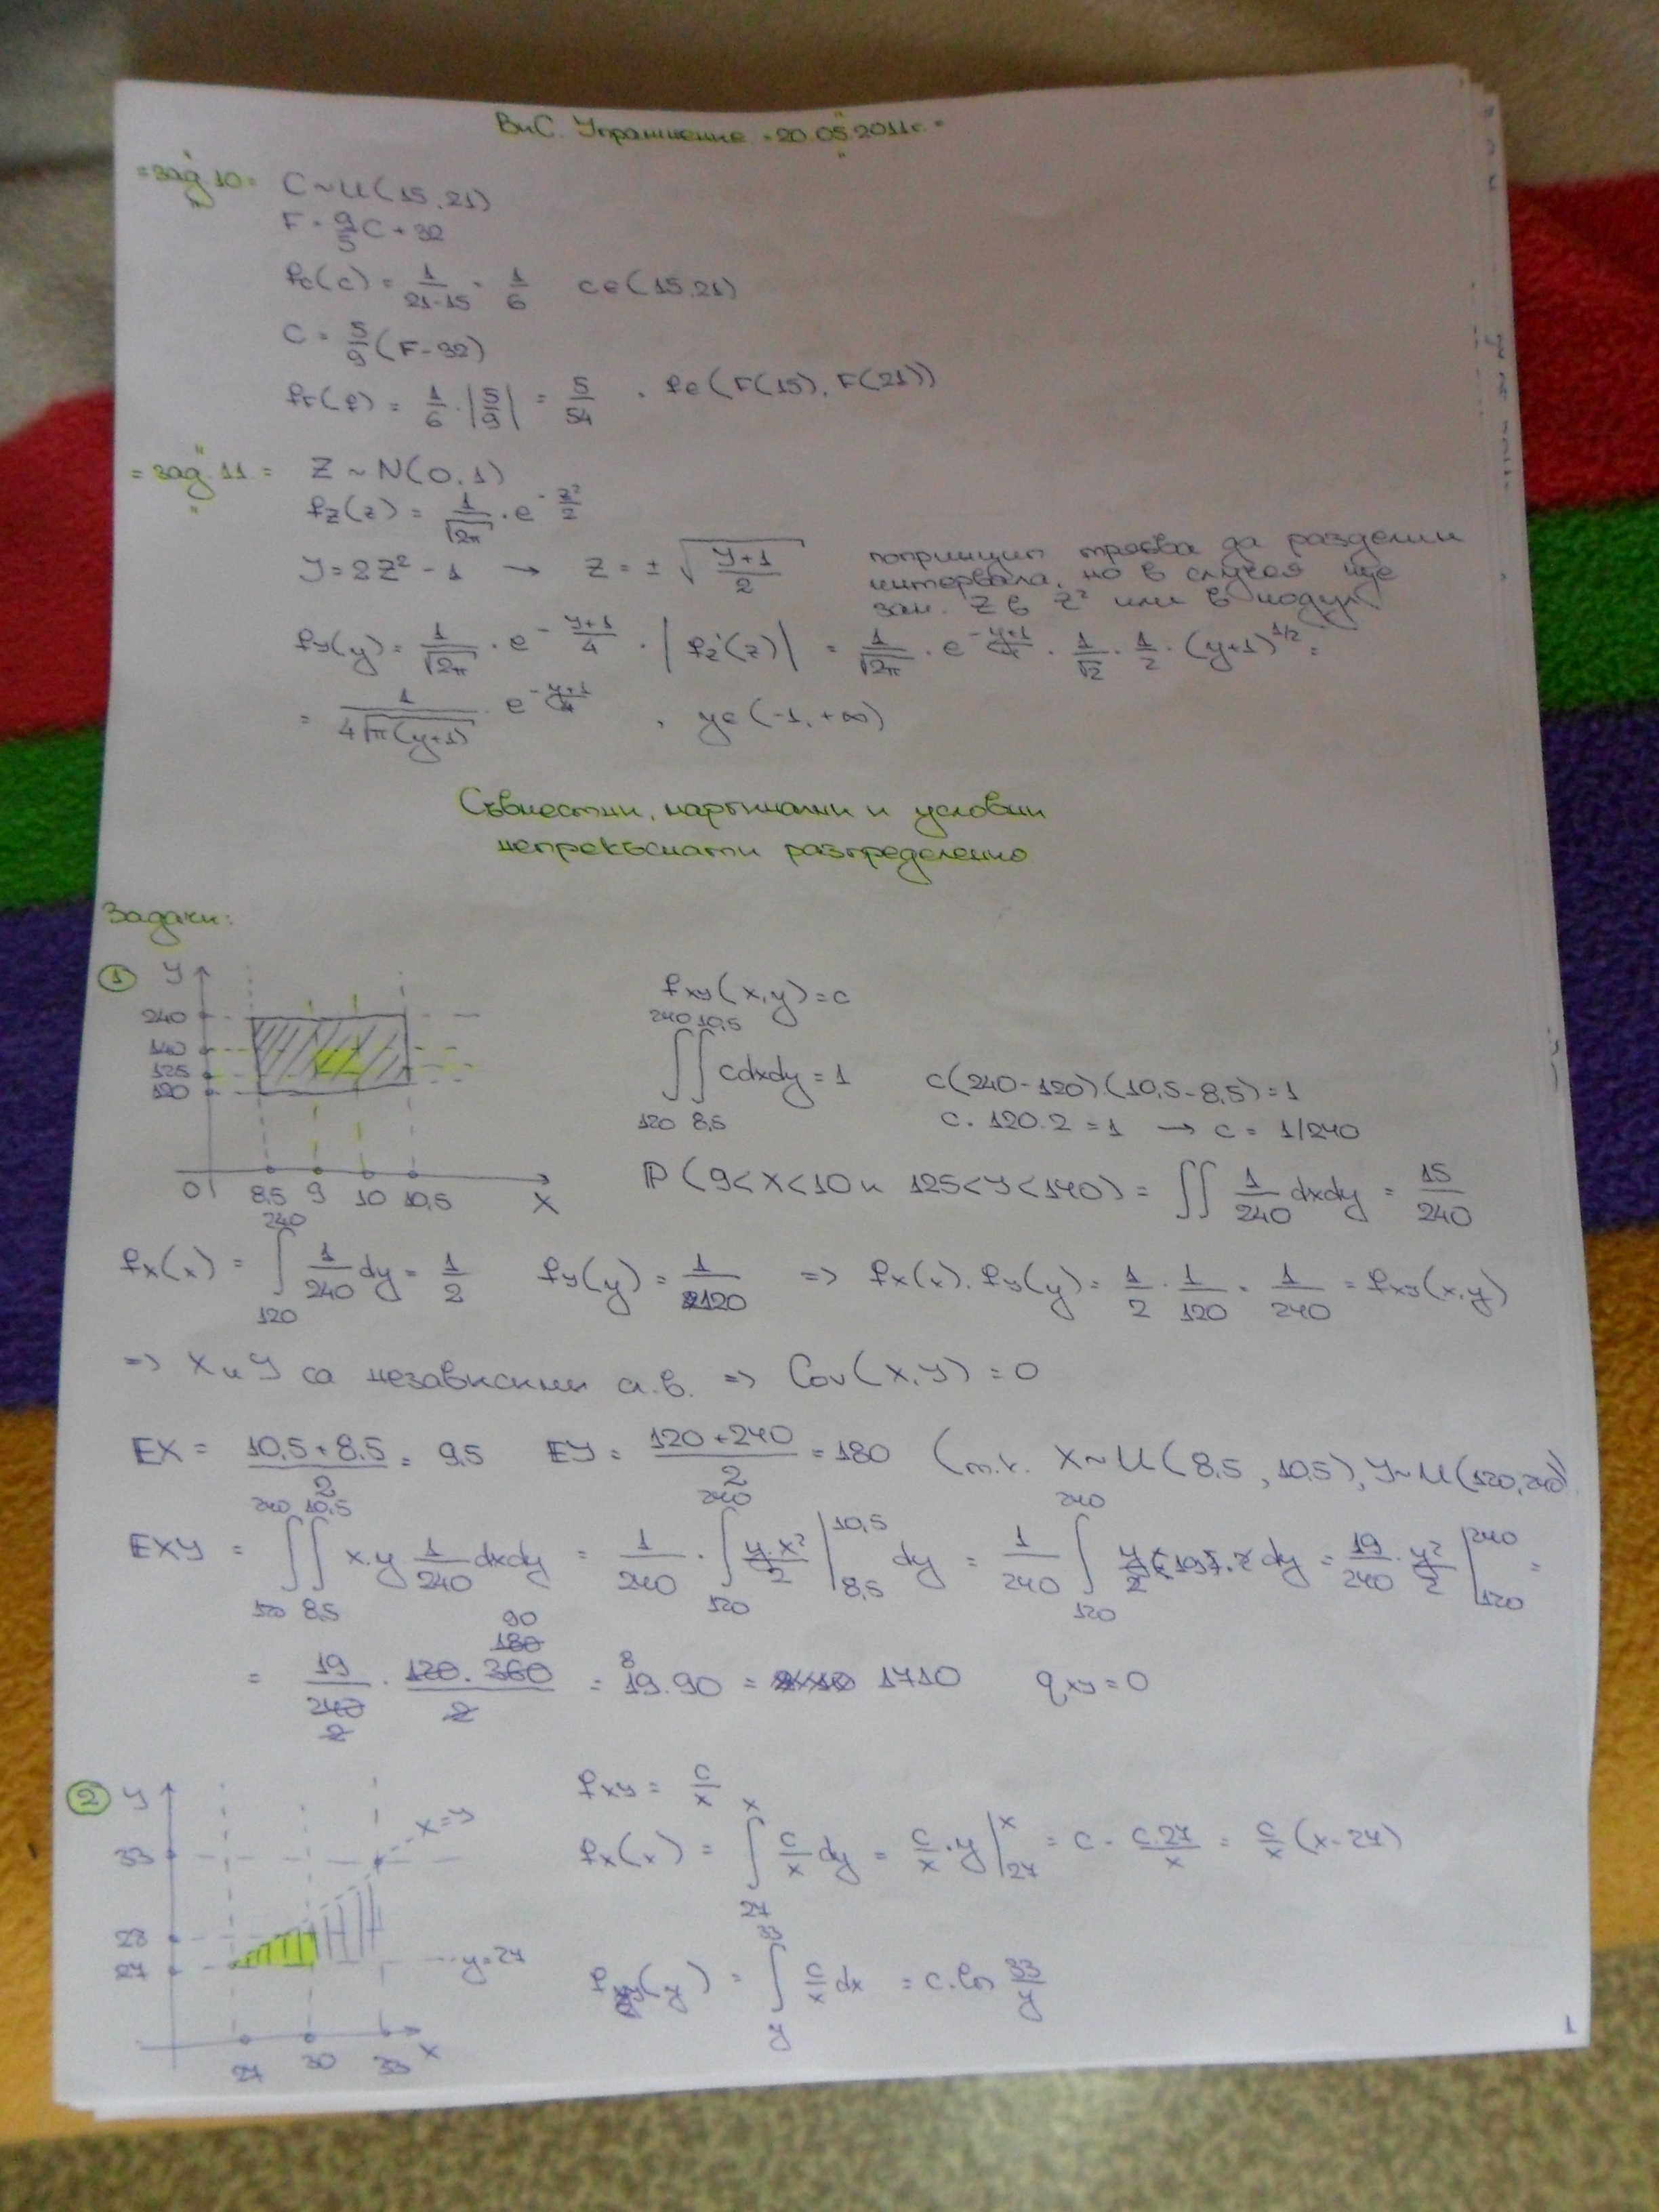 ВиС. Упражнение. "20.05.2011г."
"зад.10" C ~ U(15,21)
F = 9/5 C + 32
f_C(c) = 1/(21-15) = 1/6 c∈(15,21)
C = 5/9 (F-32)
f_F(f) = 1/6 . |5/9| = 5/54 , f∈(F(15), F(21))
"зад.11" Z ~ N(0,1)
f_Z(z) = 1/√2π . e^(-z²/2)
Y = 2Z² - 1 → Z = ± √((Y+1)/2) попринцип трябва да разделим
интервала, но в случая ще
зам. Z в z² или в модул
f_Y(y) = 1/√2π . e^(-(y+1)/4) . |f_Z'(z)| = 1/√2π . e^(-(y+1)/4) . 1/√2 . 1/2 . (y+1)^(1/2) =
= 1/(4√π(y+1)) . e^(-(y+1)/4) , y∈(-1,+∞)
Съвместни, маргинални и условни
непрекъснати разпределения
Задачи:
① Y
240
140
125
120
0 8,5 9 10 10,5 X
f_XY(x,y) = c
∫_120^240 ∫_8,5^10,5 c dxdy = 1 c(240-120).(10,5-8,5) = 1
c. 120.2 = 1 → c = 1/240
P(9<X<10 и 125<Y<140) = ∫∫ 1/240 dxdy = 15/240
f_X(x) = ∫_120^240 1/240 dy = 1/2 f_Y(y) = 1/120 => f_X(x).f_Y(y) = 1/2 . 1/120 = 1/240 = f_XY(x,y)
=> X и Y са независими сл.в. => Cov(X,Y) = 0
EX = (10,5+8,5)/2 = 9,5 EY = (120+240)/2 = 180 (т.к. X~U(8,5 , 10,5), Y~U(120,240))
EXY = ∫_120^240 ∫_8,5^10,5 x.y 1/240 dxdy = 1/240 . ∫_120^240 y.x²/2 |_8,5^10,5 dy = 1/240 ∫_120^240 y/2 19.2 dy = 19/240 . y²/2 |_120^240 =
= 19/240 . 120.360/2 = 19.90 = 1710 ρ_XY = 0
② Y
33
28
27
27 30 33 X
x=y
y=27
f_XY = c/x
f_X(x) = ∫_27^x c/x dy = c/x . y |_27^x = c - c.27/x = c/x (x-27)
f_Y(y) = ∫_y^33 c/x dx = c.ln 33/y
1